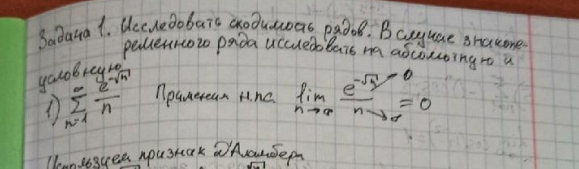 Задача 1. Исследовать сходимость рядов. В случае знакопе-
ременного ряда исследовать на абсолютную и
условную
1) ∑_{n=1}^{∞} e^{-√n}/n Применим н.п.с. lim_{n→∞} e^{-√n}→0 / n→∞ = 0
Используем признак д'Аламбера